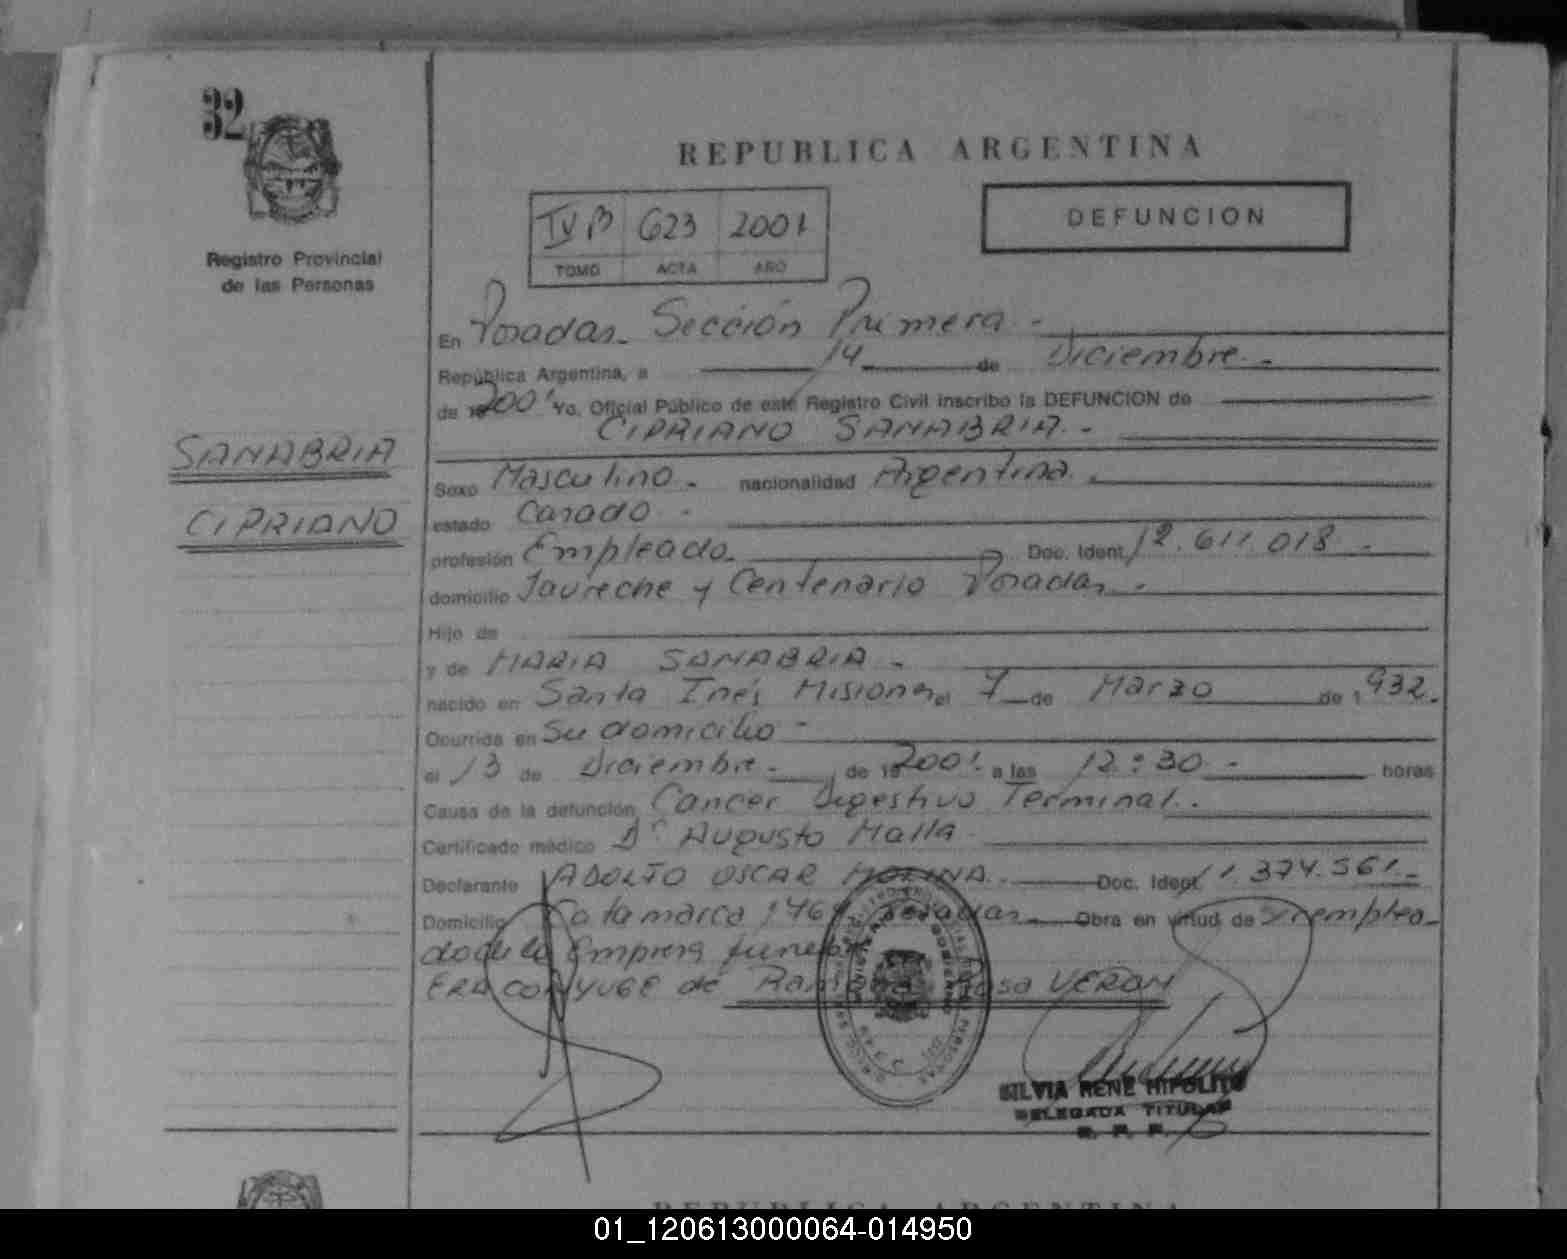 32
REPUBLICA ARGENTINA
IV B 623 2001
TOMO ACTA AÑO
DEFUNCION
Registro Provincial
de las Personas
En Posadas. Sección Primera.-
República Argentina, a 14 de Diciembre.-
de 19 2001 Yo, Oficial Público de este Registro Civil inscribo la DEFUNCION de
CIPRIANO SANABRIA.-
SANABRIA
CIPRIANO
Sexo Masculino.- nacionalidad Argentina.-
estado Casado.-
profesión Empleado.- Doc. Ident. 12.611.018.-
domicilio Jaureche y Centenario Posadas.-
Hijo de
y de MARIA SANABRIA.-
nacido en Santa Inés Misiones el 7 de Marzo de 1932.-
Ocurrida en Su domicilio.-
el 13 de Diciembre.- de 19 2001. a las 12:30.- horas
Causa de la defunción Cancer Digestivo Terminal.-
Certificado médico Dr Augusto Malla
Declarante ADOLFO OSCAR MOLINA.- Doc. Ident. 11.374.561.-
Domicilio Catamarca Posadas.- Obra en virtud de Ser emplea-
do de la Empresa funebre
ERA CONYUGE de Ramona Rosa VERON
SILVIA RENE HIPOLITO
DELEGADA TITULAR
R. P. P.
REPUBLICA ARGENTINA
01_120613000064-014950